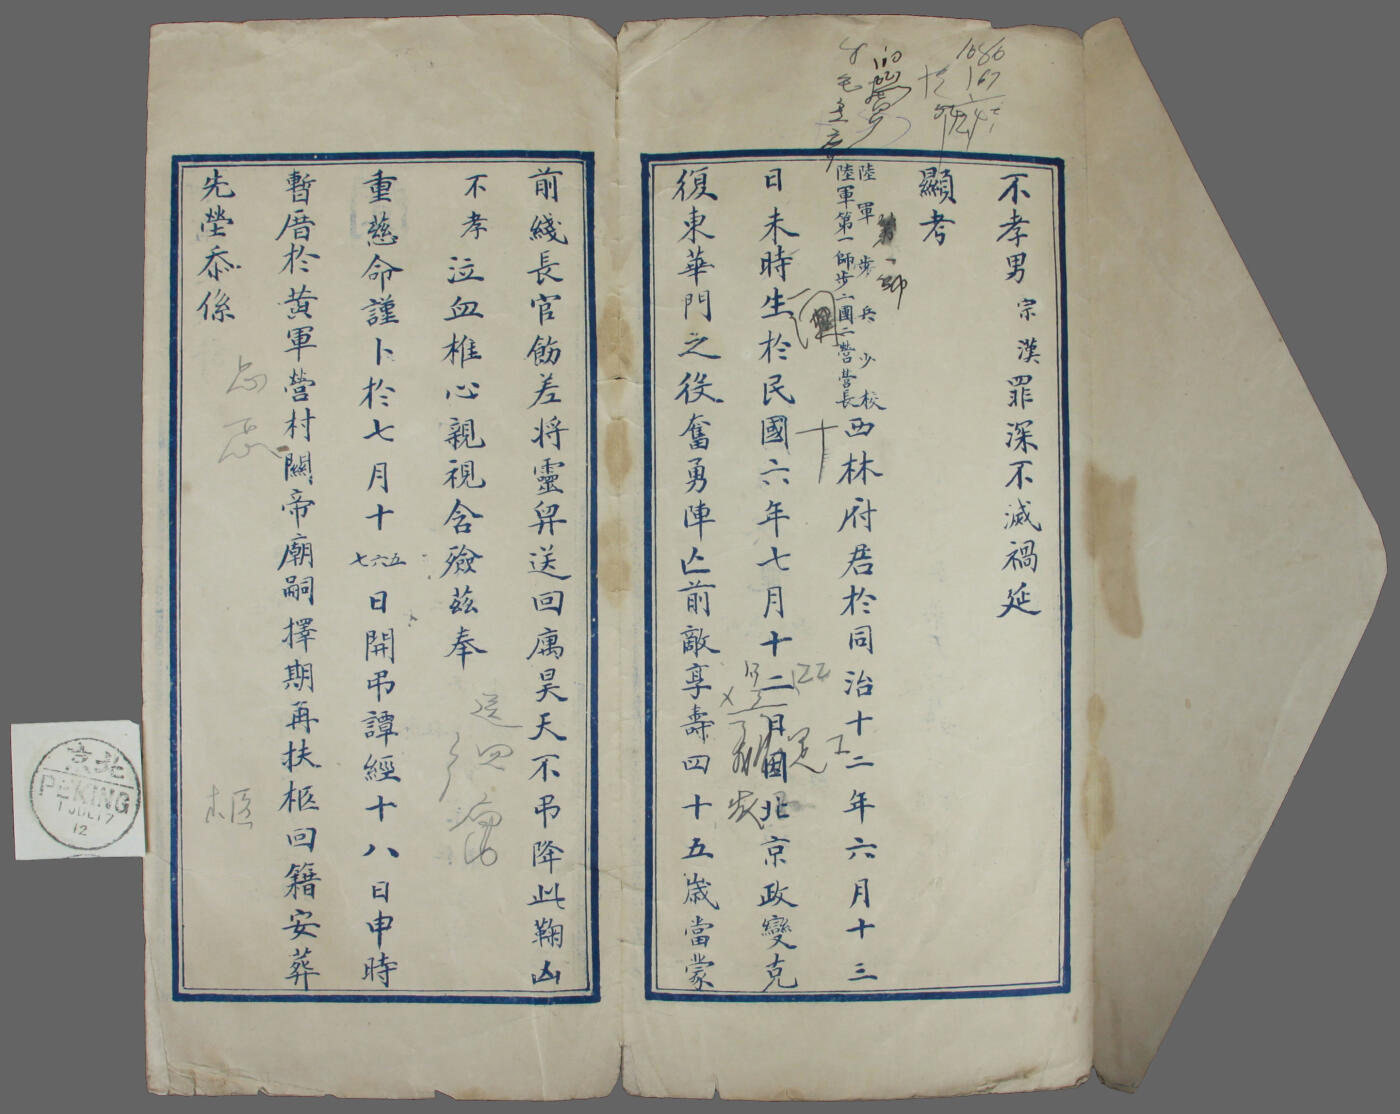 不孝男宗漢罪深不滅禍延
顯考
陸軍步兵少校
陸軍第一師步二團二營營長
西林府君於同治十二年六月十三
日未時生於民國六年七月十二日因北京政變克
復東華門之役奮勇陣亡前敵享壽四十五歲當蒙
前綫長官飭差將靈舁送回寓昊天不弔降此鞠凶
不孝泣血椎心親視含殮茲奉
重慈命謹卜於七月十五六七日開弔譚經十八日申時
暫厝於黄軍營村關帝廟嗣擇期再扶柩回籍安葬
先塋忝係
1086
167
第一師
122
柩
北京
PEKING
1 JUL 17
12